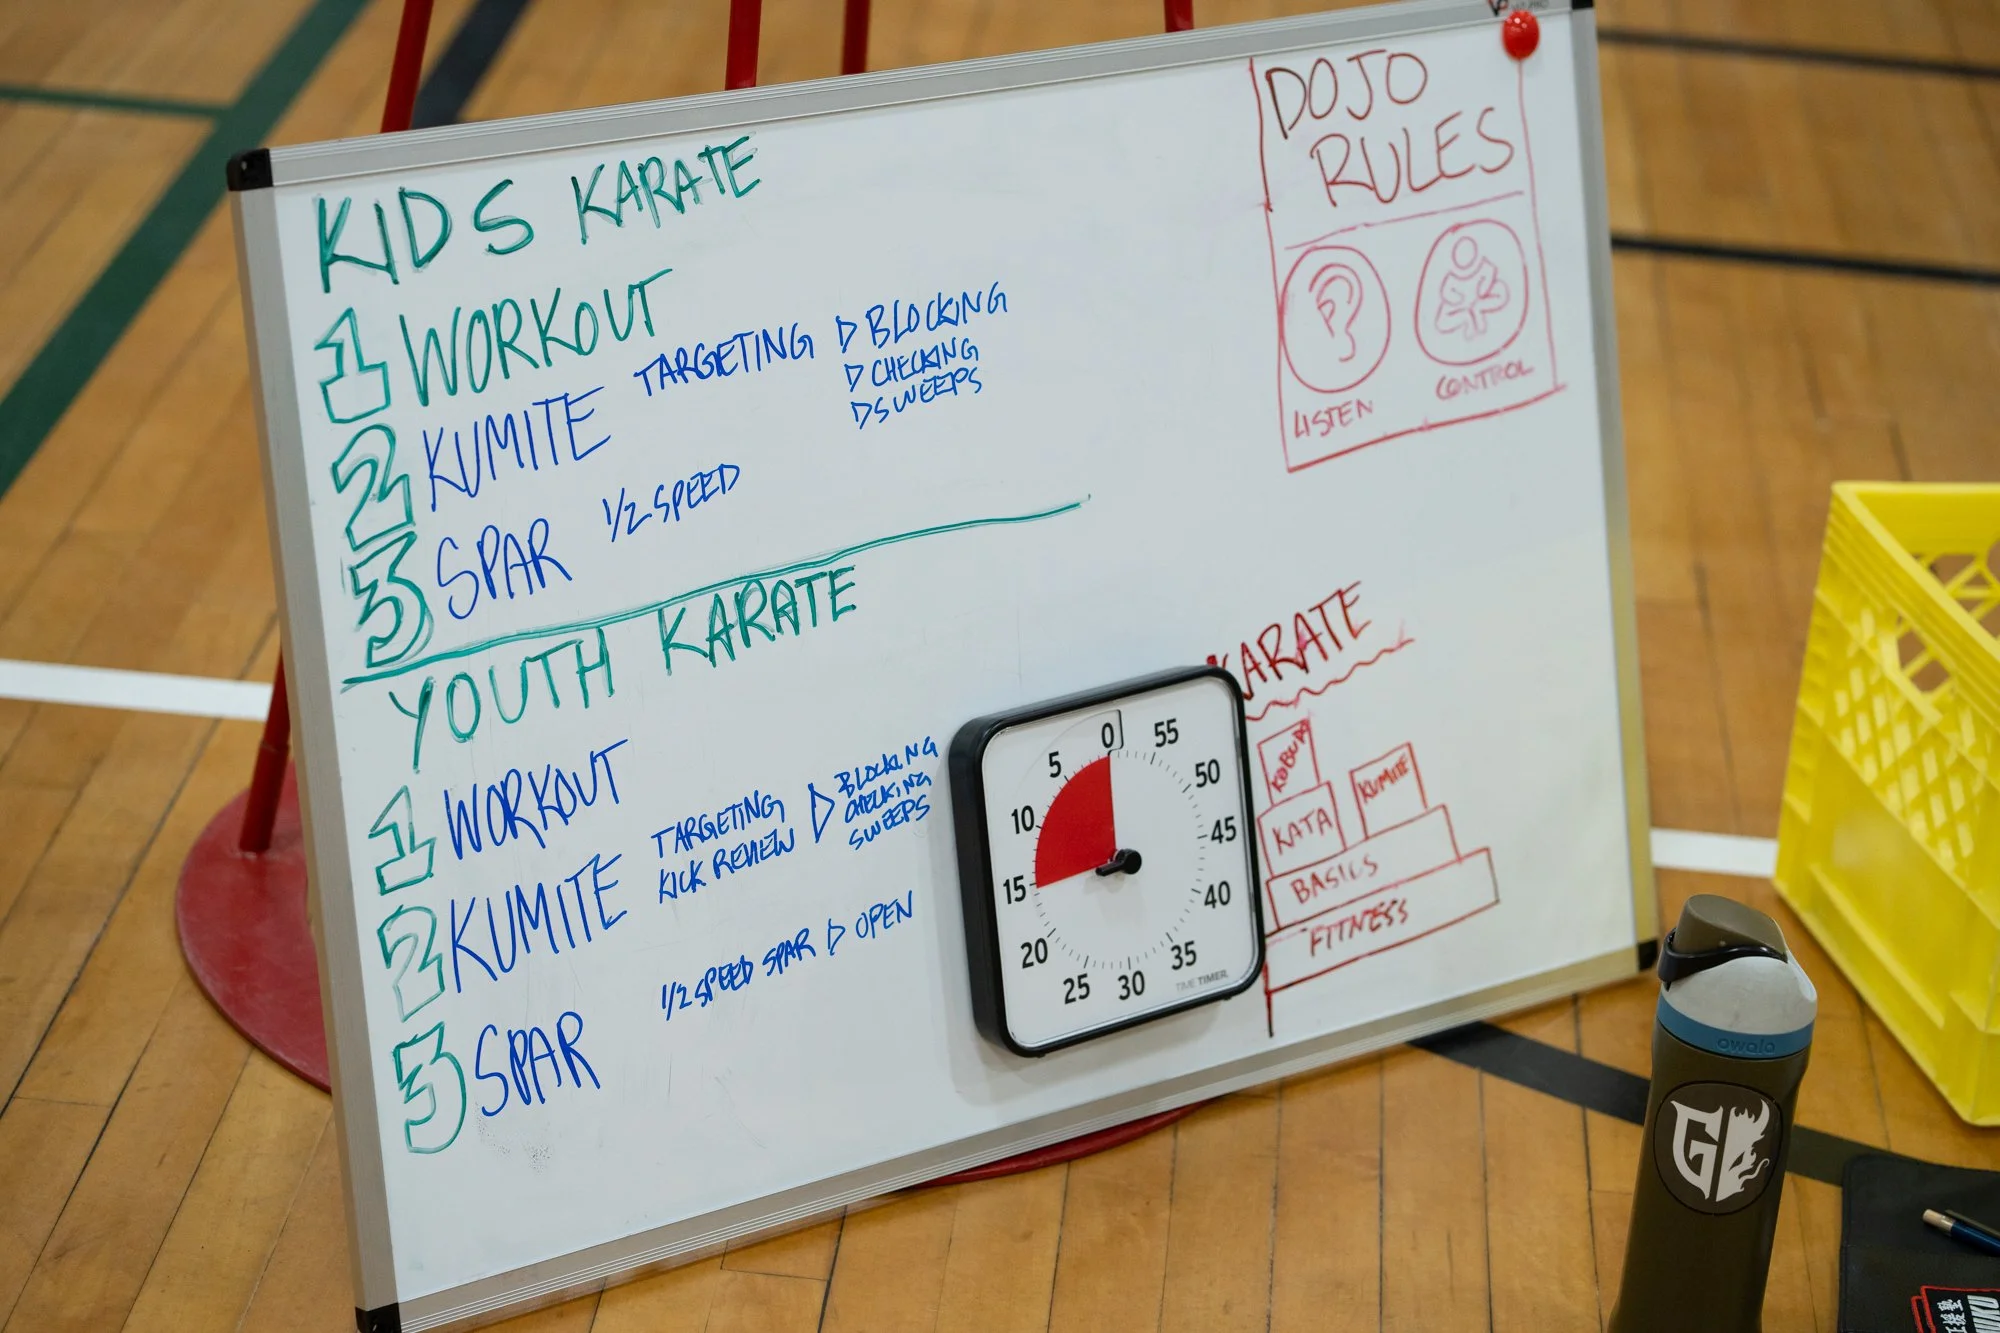 KIDS KARATE
1 WORKOUT
2 KUMITE TARGETING ▷ BLOCKING
▷ CHECKING
▷ SWEEPS
3 SPAR 1/2 SPEED
YOUTH KARATE
1 WORKOUT
2 KUMITE TARGETING
KICK REVIEW ▷ BLOCKING
CHECKING
SWEEPS
3 SPAR 1/2 SPEED SPAR ▷ OPEN
DOJO
RULES
LISTEN CONTROL
KARATE
KOBUDO
KATA KUMITE
BASICS
FITNESS
0 55 50 45 40 35 30 25 20 15 10 5
TIME TIMER
owala
G